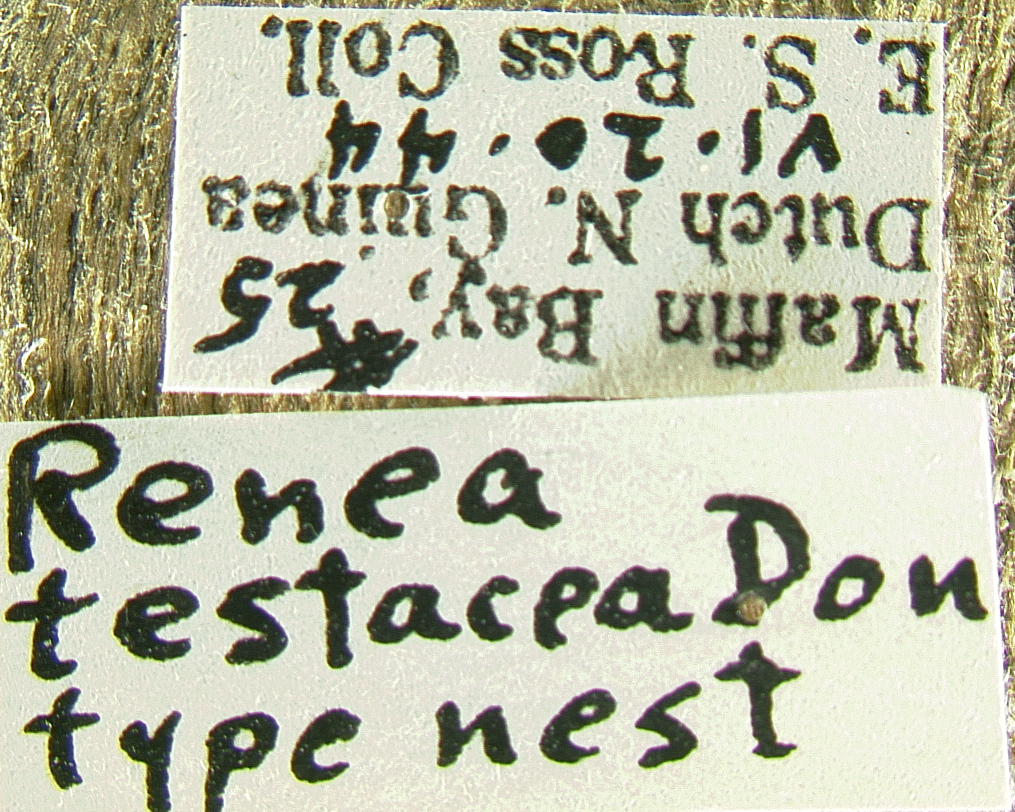 Maffin Bay, #25
Dutch N. Guinea
VI·20·44
E. S. Ross Coll.
Renea
testacea Don
type nest